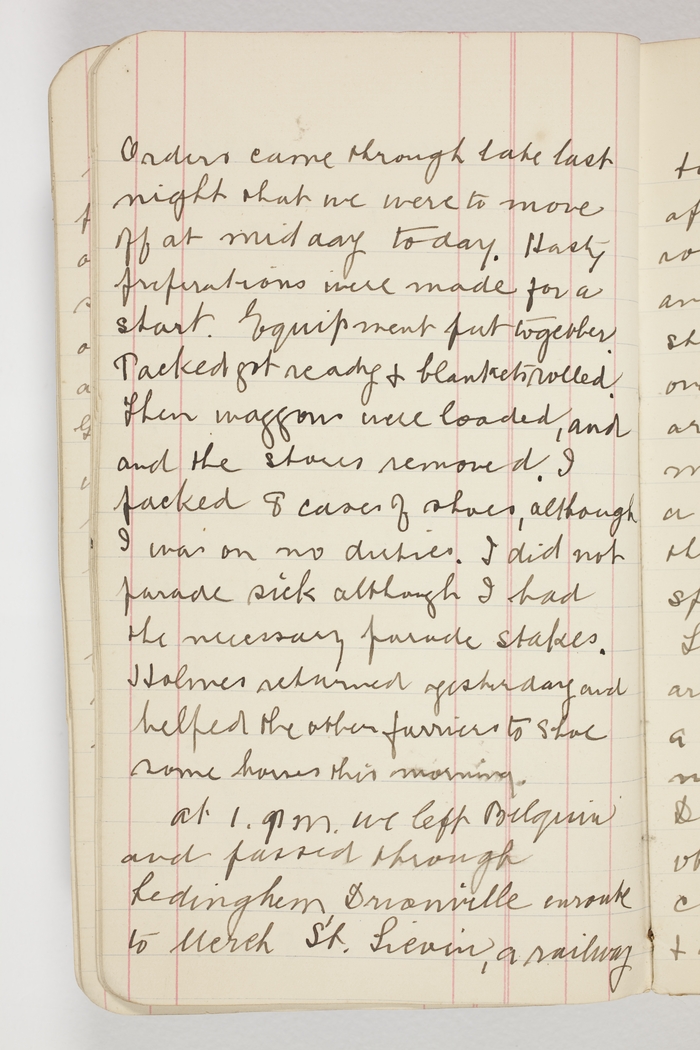 Orders came through late last
night that we were to move
off at midday today. Hasty
preperations were made for a
start. Equipment put together.
Packed got ready & blankets rolled.
Then waggons were loaded, and
and the stores removed. I
packed 8 cases of shoes, although
I was on no duties. I did not
parade sick although I had
the necessary parade states.
Holmes returned yesterday and
helped the other farriers to shoe
some horses this morning.
at 1. pm. we left Belquin
and passed through
Ledinghem, Drionville enroute
to Merck St. Lievin, a railway